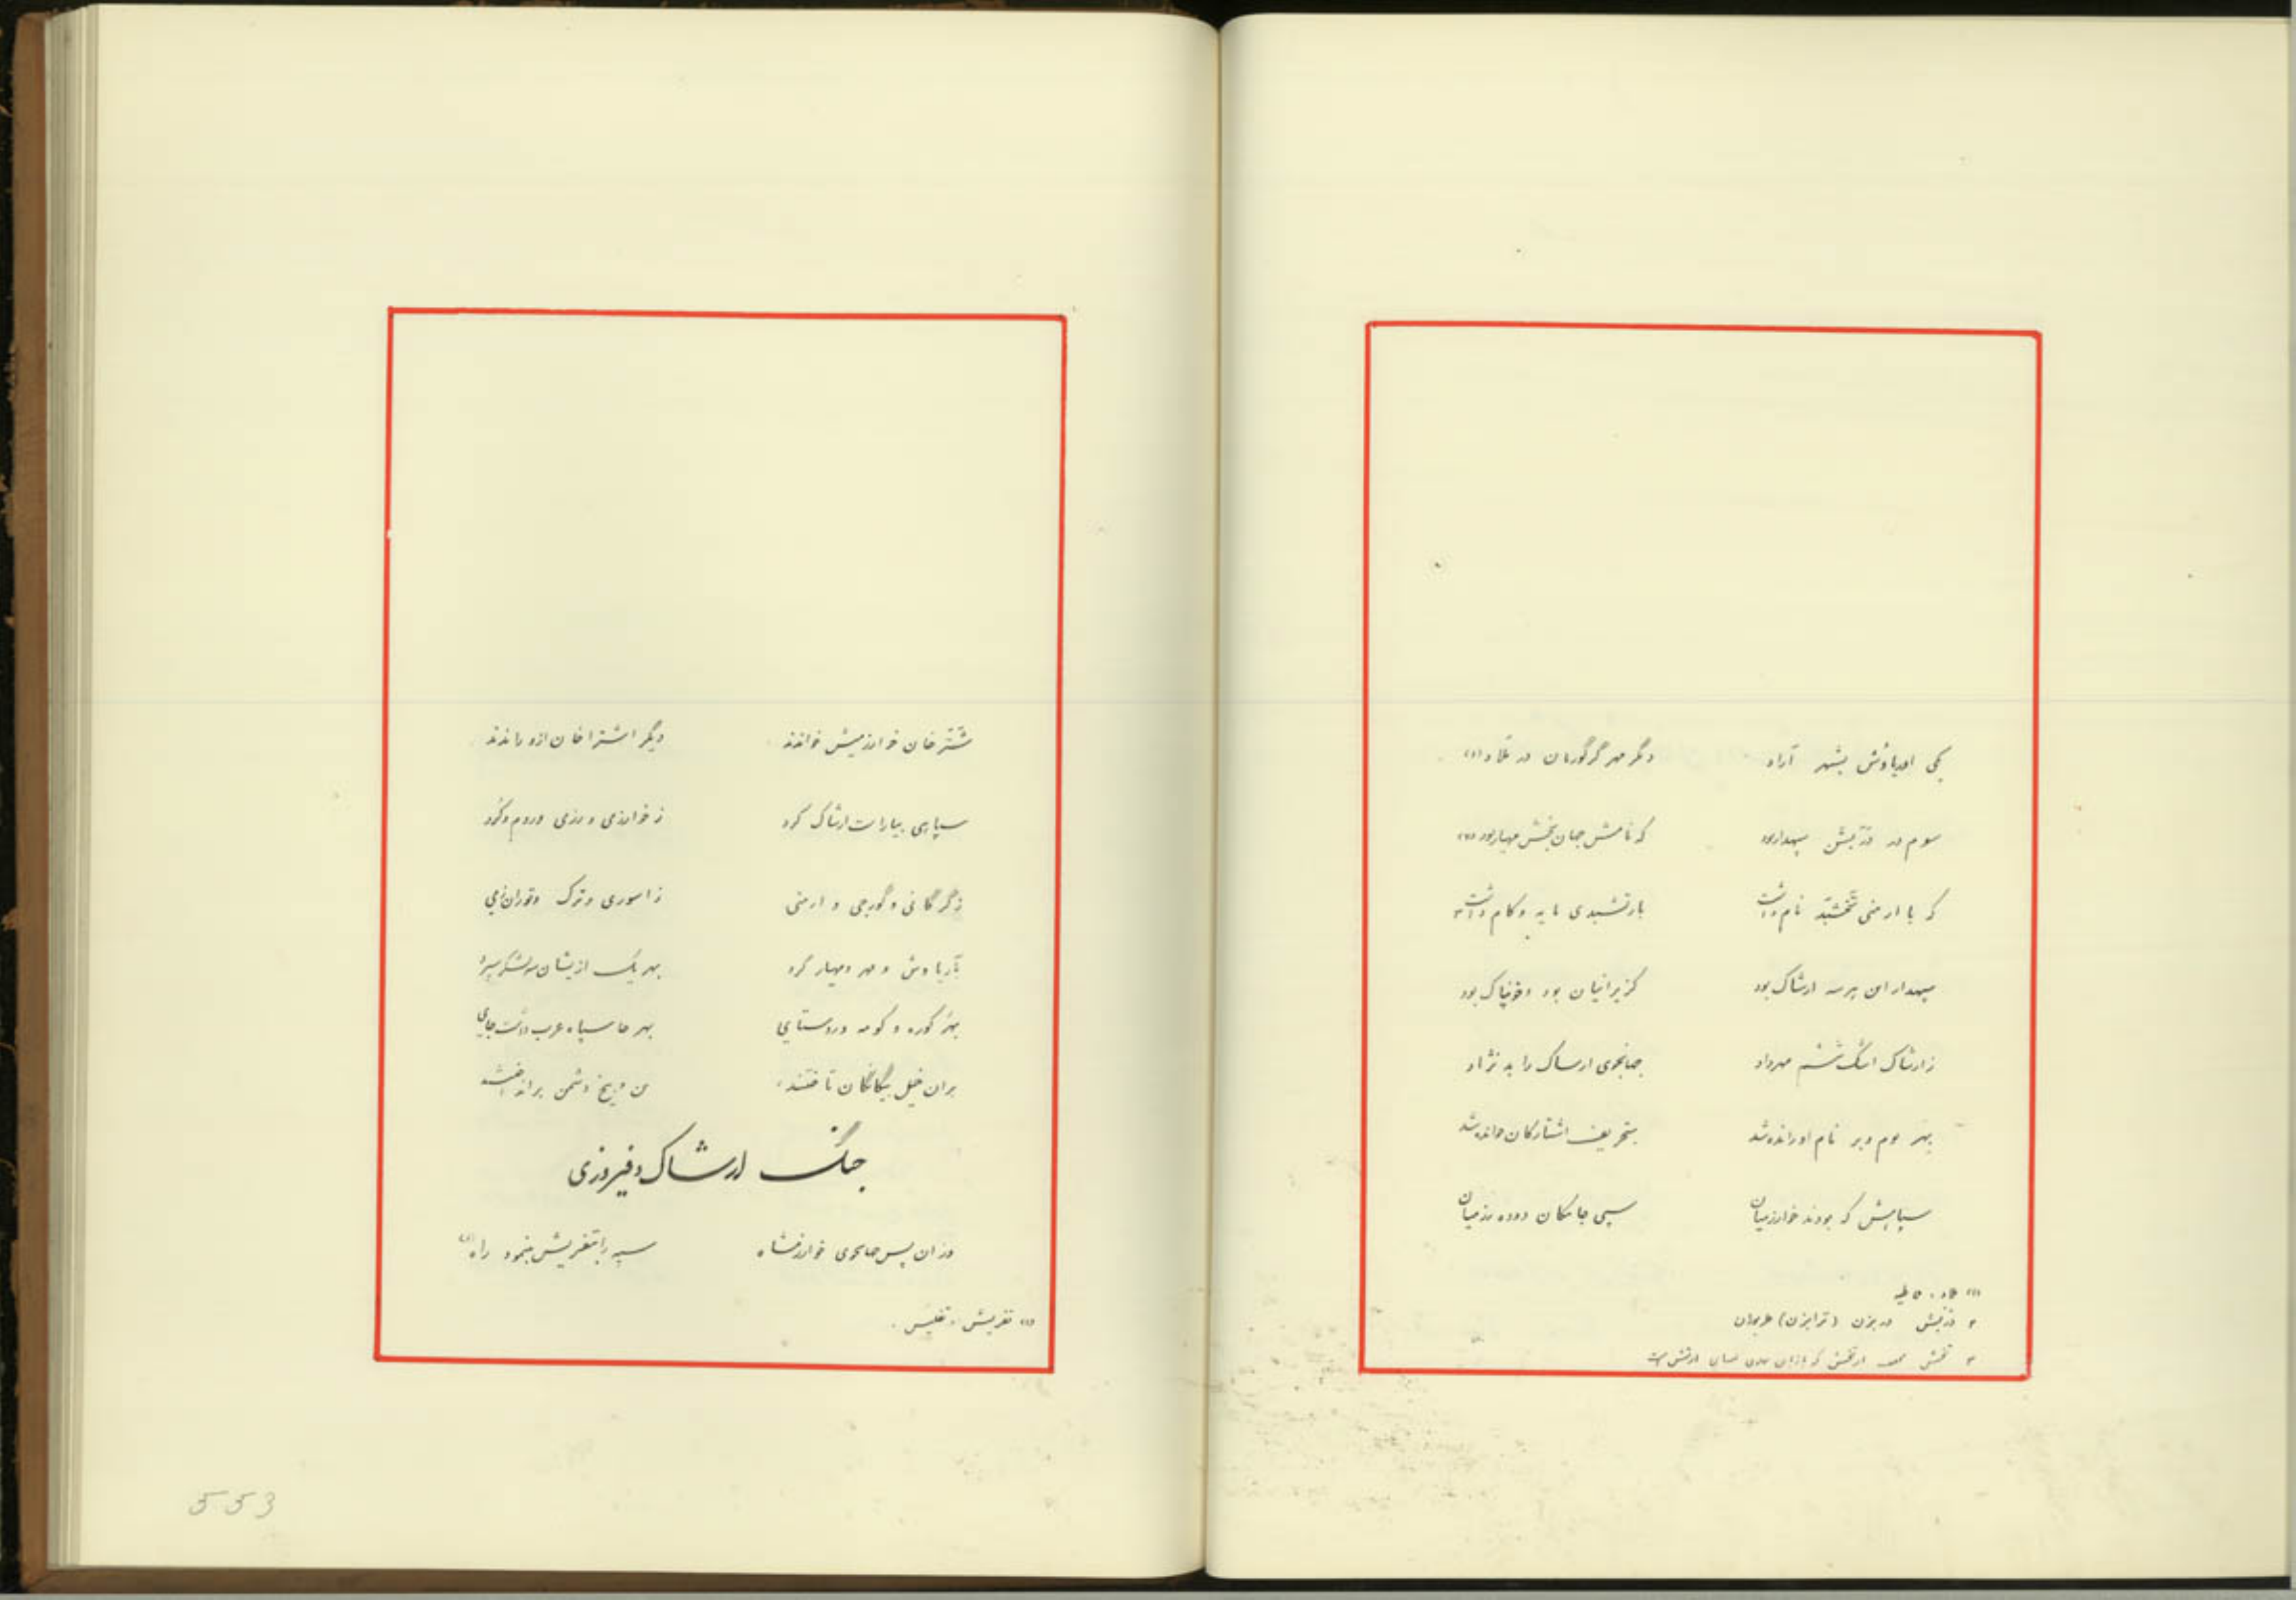 یکی اورباوش بشهر آراد دگر مهر گرگوریان در تلاد (۱)
سوم در دژبش سپهدار بود که نامش جهان بخش مهیار بود (۲)
که با ارمنی تخشبد نام داشت بارتشبدی مایه و کام داشت ۳
سپهدار این هرسه ارشاک بود کز ایرانیان بود و خونپاک بود
ز ارشاک اشک ششم مهرداد جهانجوی ارساک را بد نژاد
بهر بوم و بر نام او رانده شد بتحریف اشتارکان خوانده شد
سپاهش که بودند خوارزمیان سپی جامگان دوده رزمیان
(۱) تلاد .
۲ دژبش در بزن (ترابزن)
۳ تخش
شترخان خوارزمیش خواندند دیگر اشتراخان ازو راندند
سپاهی بیاراست ارشاک گرد ز خوارزمی و رزمی و روم و کرد
ز گرگانی و گورجی و ارمنی ز اسوری و ترک و توران زمی
بآریاوش و مهر و مهیار گرد بهر یک ازیشان سه لشکر سپرد
بهر کوره و کومه و روستای بهر جا سپاه عرب داشت جای
بران خیل بیگانگان تاختند بن و بیخ دشمن برانداختند
جنگ ارشاک و فیروزی
وزان پس جهانجوی خوارزمشاه سپه را بتفریش بنمود راه (۱)
(۱) تفریش . تفلیس .
553